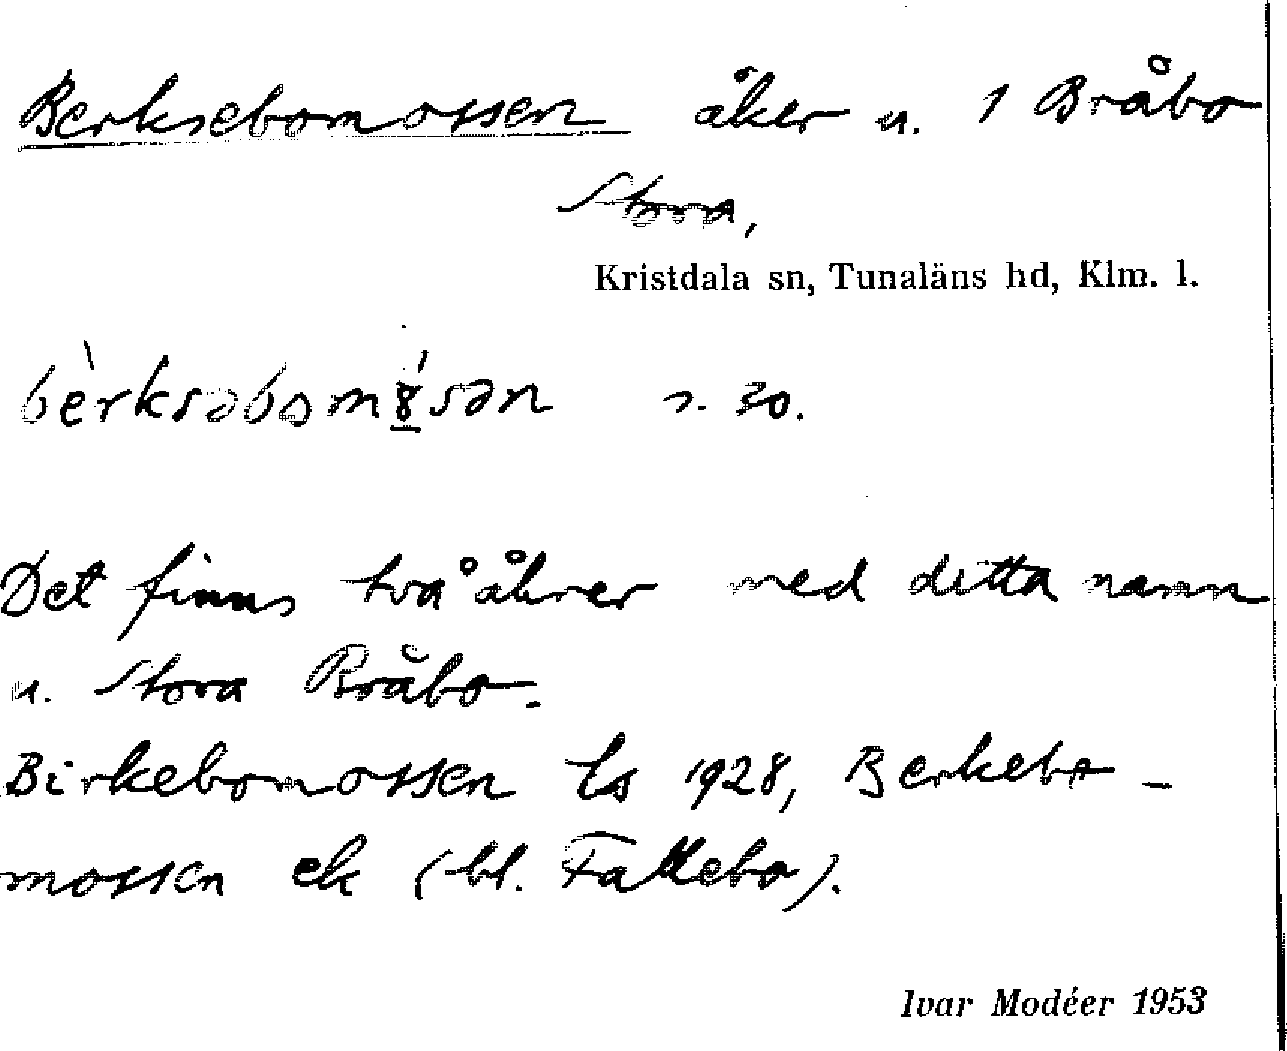 Berksebomossen åker u. 1 Bråbo
Stora,
Kristdala sn, Tunaläns hd, Klm. l.
s. 30.
Det finns två åkrer med detta namn
u. Stora Bråbo.
Birkebomossen Ls 1928, Berkebo-
mossen ek (bl. Fallebo).
Ivar Modéer 1953